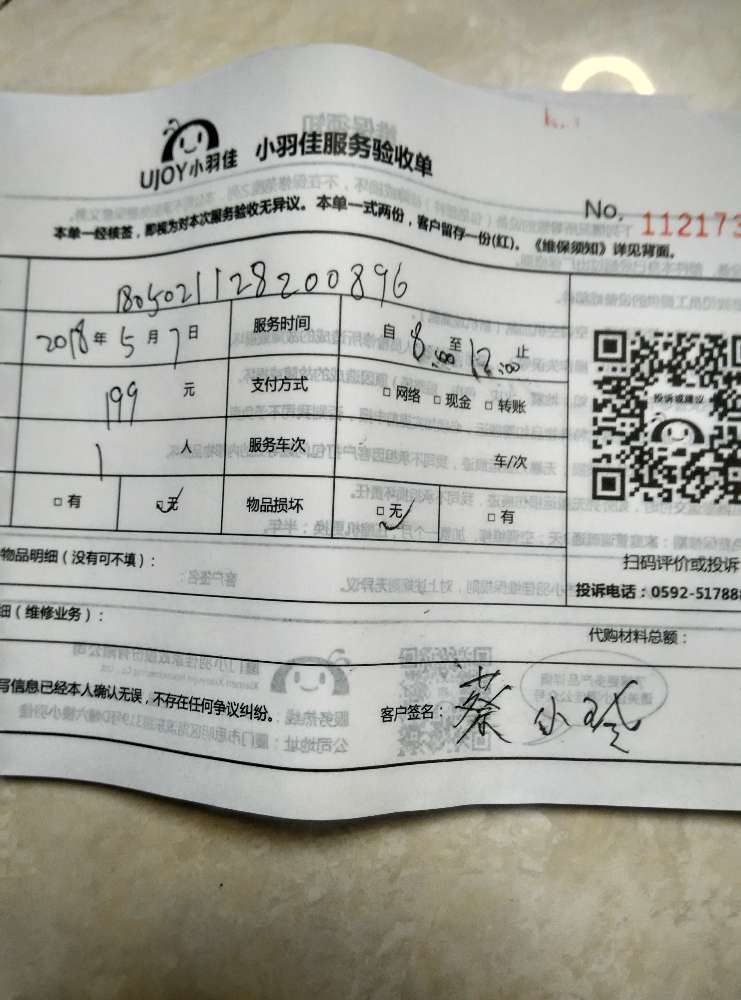 UJOY小羽佳 小羽佳服务验收单
No. 112173
本单一经核签，即视为对本次服务验收无异议。本单一式两份，客户留存一份(红)。《维保须知》详见背面。
1805021128200896
2018年5月7日 服务时间 自8:00至12:00止
199元 支付方式 □网络 □现金 □转账
1人 服务车次 车/次
□有 □无 物品损坏 □无 □有
投诉或建议
扫码评价或投诉
物品明细（没有可不填）：
投诉电话：0592-51788
细（维修业务）：
代购材料总额：
写信息已经本人确认无误，不存在任何争议纠纷。 客户签名：蔡小玲